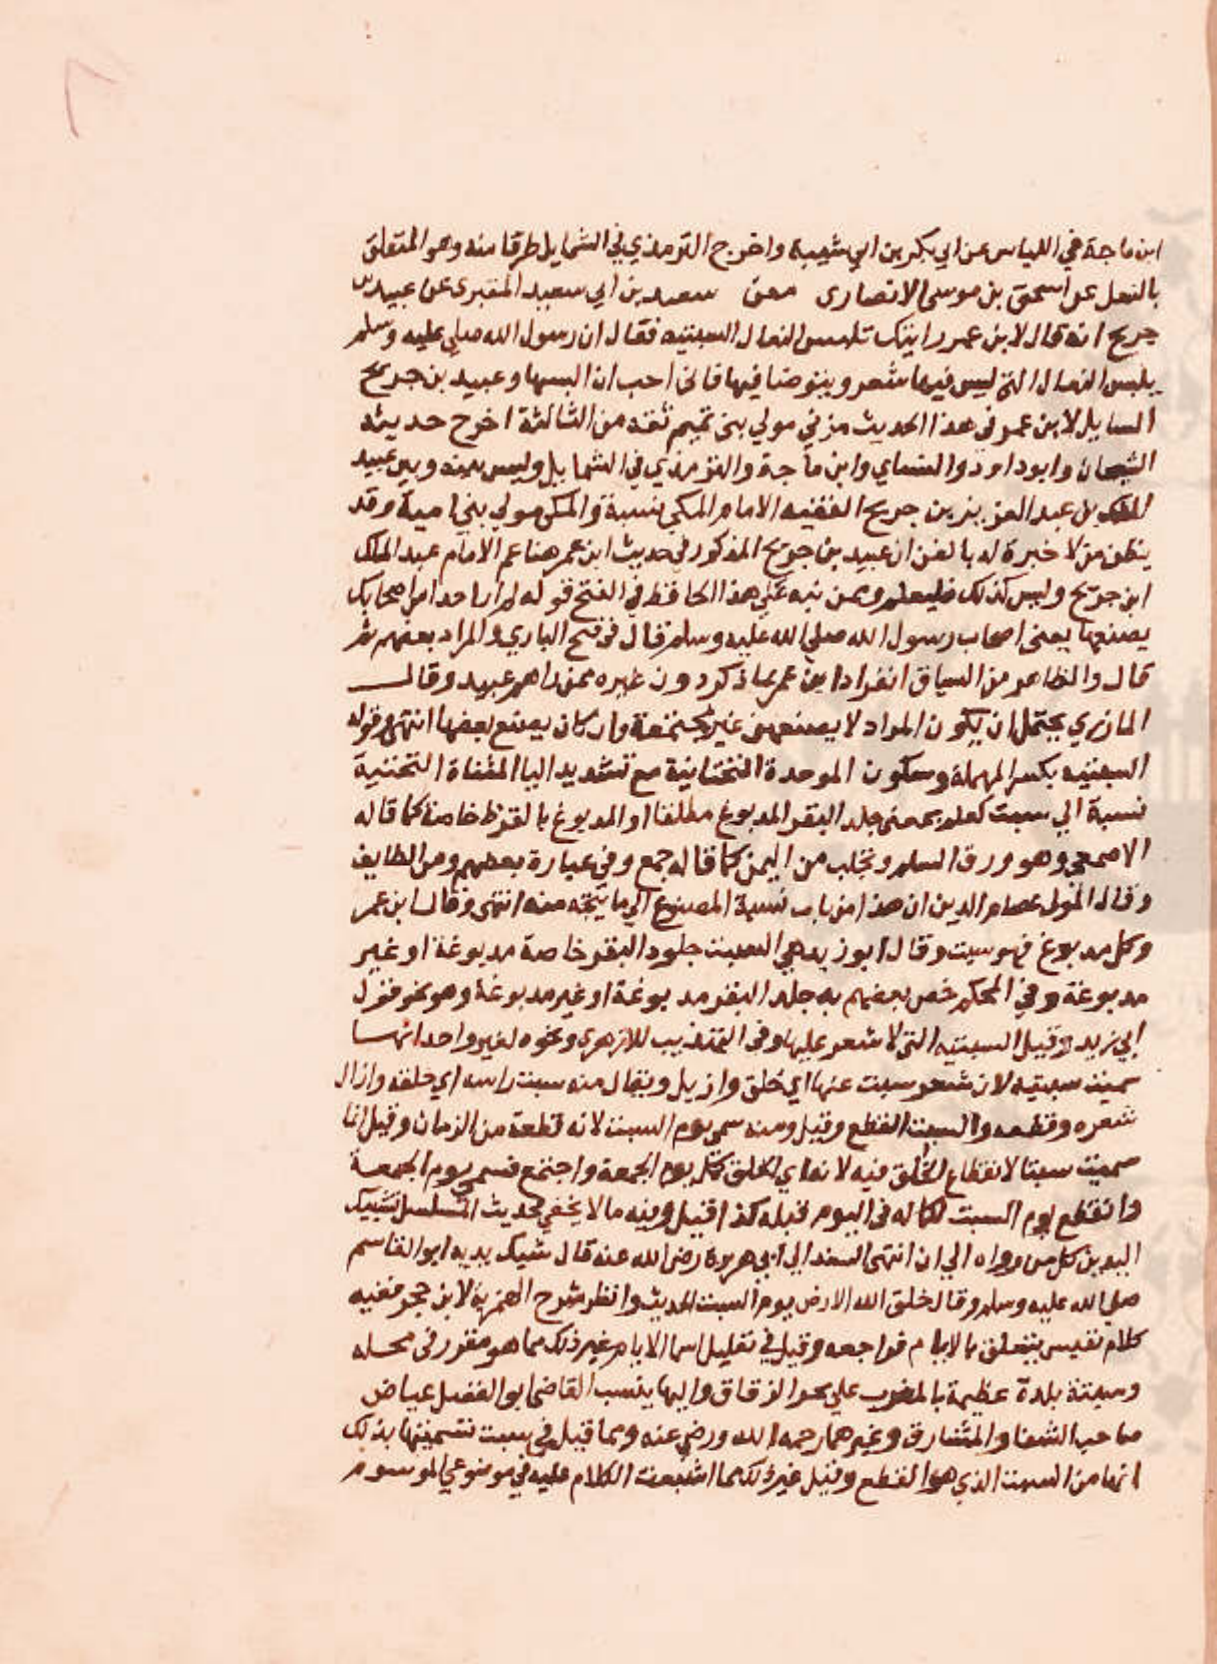 ابن ماجة في اللباس عن ابي بكر بن ابي شيبة واخرج الترمذي في الشمايل طرفا منه وهو المتعلق
بالنعل عن اسحق بن موسى الانصارى معن سعيد بن ابي سعيد المقبرى عن عبيد بن
جريج انه قال لابن عمر رايتك تلبس النعال السبتيه فقال ان رسول الله صلي عليه وسلم
يلبس النعال التي ليس فيها شعر ويتوضا فيها فانى احب ان البسها وعبيد بن جريج
السايل لابن عمر في هذا الحديث مزني مولي بنى تميم ثقه من الثالثة اخرج حديثه
الشيخان وابو داود والنساي وابن ماجة والترمذي في الشمايل وليس بينه وبين عبيد
الملك بن عبد العزيز بن جريج الفقيه الامام المكي نسبة والمكي مولي بني امية وقد
يظن من لا خبرة له بالفن ان عبيد بن جريج المذكور في حديث ابن عمر هنا عم الامام عبد الملك
ابن جريج وليس كذلك فليعلم وممن نبه على هذا الحافظ في الفتح قوله لم ار احدا من اصحابك
يصنعها يعنى اصحاب رسول الله صلي الله عليه وسلم قال فى فتح الباري والمراد بعضهم ثم
قال والظاهر من السياق انفراد ابن عمر بما ذكر دون غيره ممن راهم عبيد وقال
المازري يحتمل ان يكون المراد لا يصنعهن غيرك مجتمعة وان كان يصنع بعضها انتهى قوله
السبتيه بكسر المهملة وسكون الموحدة التحتانية مع تشديد اليا المثناة التحتية
نسبة الي سبت كعلم بمعنى جلد البقر المدبوغ مطلقا او المدبوغ بالقرظ خاصة كما قاله
الاصمعي وهو ورق السلم وتجلب من اليمن كما قاله جمع وفي عبارة بعضهم ومن الطايف
وقال المولى عصام الدين ان هذا من باب نسبة المصنوع الي ما يتخذ منه انتهى وقال ابن عمر
وكل مدبوغ فهو سبت وقال ابو زيد هي السبت جلود البقر خاصة مدبوغة او غير
مدبوغة وفي المحكم خص بعضهم به جلد البقر مدبوغة او غير مدبوغة وهو نحو قول
ابي زيد وقيل السبتيه التي لا شعر عليها وفي التهذيب للازهرى ونحوه لغير واحد انها
سميت سبتيه لان شعر سبت عنها اي حلق وازيل ويقال منه سبت راسه اي حلقه وازال
شعره وقطعه والسبت القطع وقيل ومنه سمى يوم السبت لانه قطعة من الزمان وقيل انما
سميت سبتا لانقطاع الخلق فيه لانه اي الخلق يوم الجمعة واجتمع فسمي يوم الجمعة
وانقطع يوم السبت لكماله فى اليوم قبله كذا قيل وفيه ما لا يخفي لحديث المسلسل بتشبيك
اليد بن كل من رواه الي ان انتهى السند الي ابي هريرة رضى الله عنه قال شبك بيديه ابو القاسم
صلي الله عليه وسلم وقال خلق الله الارض يوم السبت الحديث وانظر شرح الهمزية لابن حجر ففيه
كلام نفيس يتعلق بالايام فراجعه وقيل في تعليل اسما الايام غير ذلك مما هو مقرر في محله
وسبتة بلدة عظيمة بالمغرب على بحر الزقاق واليها ينسب القاضى ابو الفضل عياض
صاحب الشفا والمشارق وغيرهما رحمه الله ورضي عنه ومما قيل في سبت تسميتها بذلك
انها من السبت الذي هو القطع وقيل غير ذلك مما اشبعت الكلام عليه في موضوعي الموسوم